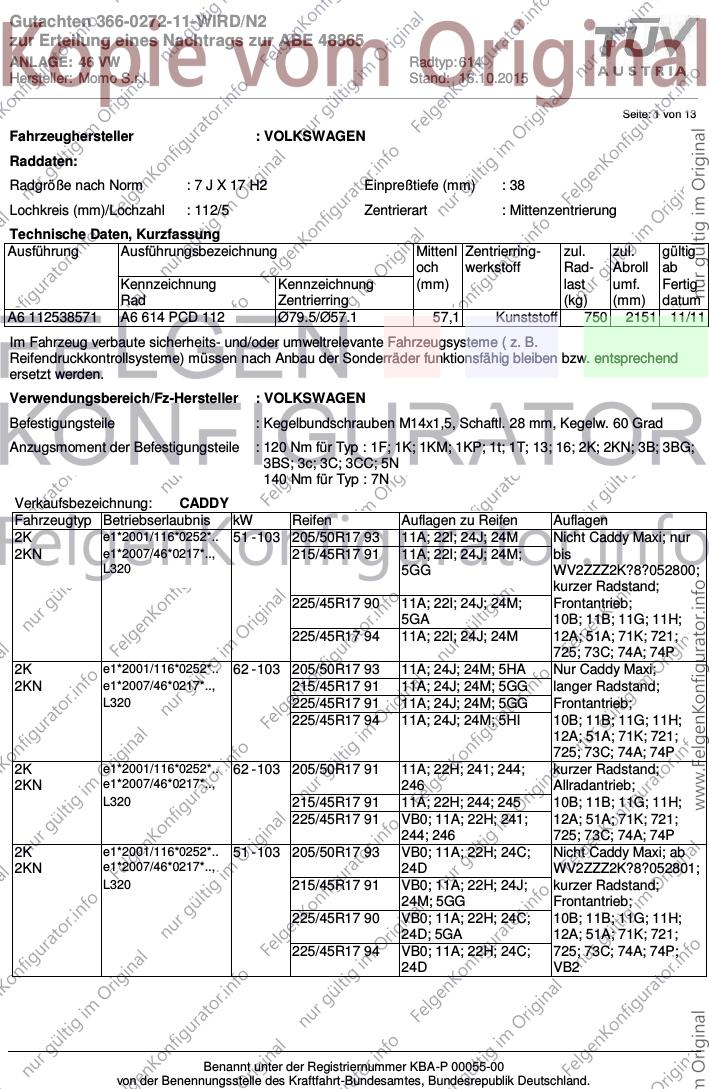 Gutachten 366-0272-11-WIRD/N2
zur Erteilung eines Nachtrags zur ABE 48865
ANLAGE: 46 VW
Hersteller: Momo S.r.l.
Radtyp:614
Stand: 16.10.2015
TÜV
AUSTRIA
Kopie vom Original
Seite: 1 von 13
Fahrzeughersteller : VOLKSWAGEN
Raddaten:
Radgröße nach Norm : 7 J X 17 H2 Einpreßtiefe (mm) : 38
Lochkreis (mm)/Lochzahl : 112/5 Zentrierart : Mittenzentrierung
Technische Daten, Kurzfassung
Ausführung Ausführungsbezeichnung Mittenl Zentrierring- zul. zul. gültig
och werkstoff Rad- Abroll ab
Kennzeichnung Kennzeichnung (mm) last umf. Fertig
Rad Zentrierring (kg) (mm) datum
A6 112538571 A6 614 PCD 112 Ø79.5/Ø57.1 57,1 Kunststoff 750 2151 11/11
Im Fahrzeug verbaute sicherheits- und/oder umweltrelevante Fahrzeugsysteme ( z. B.
Reifendruckkontrollsysteme) müssen nach Anbau der Sonderräder funktionsfähig bleiben bzw. entsprechend
ersetzt werden.
Verwendungsbereich/Fz-Hersteller : VOLKSWAGEN
Befestigungsteile : Kegelbundschrauben M14x1,5, Schaftl. 28 mm, Kegelw. 60 Grad
Anzugsmoment der Befestigungsteile : 120 Nm für Typ : 1F; 1K; 1KM; 1KP; 1t; 1T; 13; 16; 2K; 2KN; 3B; 3BG;
3BS; 3c; 3C; 3CC; 5N
140 Nm für Typ : 7N
FELGEN
KONFIGURATOR
FelgenKonfigurator.info
Verkaufsbezeichnung: CADDY
Fahrzeugtyp Betriebserlaubnis kW Reifen Auflagen zu Reifen Auflagen
2K e1*2001/116*0252*.. 51-103 205/50R17 93 11A; 22I; 24J; 24M Nicht Caddy Maxi; nur
2KN e1*2007/46*0217*.., 215/45R17 91 11A; 22I; 24J; 24M; bis
L320 5GG WV2ZZZ2K?8?052800;
kurzer Radstand;
225/45R17 90 11A; 22I; 24J; 24M; Frontantrieb;
5GA 10B; 11B; 11G; 11H;
225/45R17 94 11A; 22I; 24J; 24M 12A; 51A; 71K; 721;
725; 73C; 74A; 74P
2K e1*2001/116*0252*.. 62-103 205/50R17 93 11A; 24J; 24M; 5HA Nur Caddy Maxi;
2KN e1*2007/46*0217*.., 215/45R17 91 11A; 24J; 24M; 5GG langer Radstand;
L320 225/45R17 91 11A; 24J; 24M; 5GG Frontantrieb;
225/45R17 94 11A; 24J; 24M; 5HI 10B; 11B; 11G; 11H;
12A; 51A; 71K; 721;
725; 73C; 74A; 74P
2K e1*2001/116*0252*.. 62-103 205/50R17 91 11A; 22H; 241; 244; kurzer Radstand;
2KN e1*2007/46*0217*.., 246 Allradantrieb;
L320 215/45R17 91 11A; 22H; 244; 245 10B; 11B; 11G; 11H;
225/45R17 91 VB0; 11A; 22H; 241; 12A; 51A; 71K; 721;
244; 246 725; 73C; 74A; 74P
2K e1*2001/116*0252*.. 51-103 205/50R17 93 VB0; 11A; 22H; 24C; Nicht Caddy Maxi; ab
2KN e1*2007/46*0217*.., 24D WV2ZZZ2K?8?052801;
L320 215/45R17 91 VB0; 11A; 22H; 24J; kurzer Radstand;
24M; 5GG Frontantrieb;
225/45R17 90 VB0; 11A; 22H; 24C; 10B; 11B; 11G; 11H;
24D; 5GA 12A; 51A; 71K; 721;
225/45R17 94 VB0; 11A; 22H; 24C; 725; 73C; 74A; 74P;
24D VB2
nur gültig im Original
www.FelgenKonfigurator.info
Benannt unter der Registriernummer KBA-P 00055-00
von der Benennungsstelle des Kraftfahrt-Bundesamtes, Bundesrepublik Deutschland.